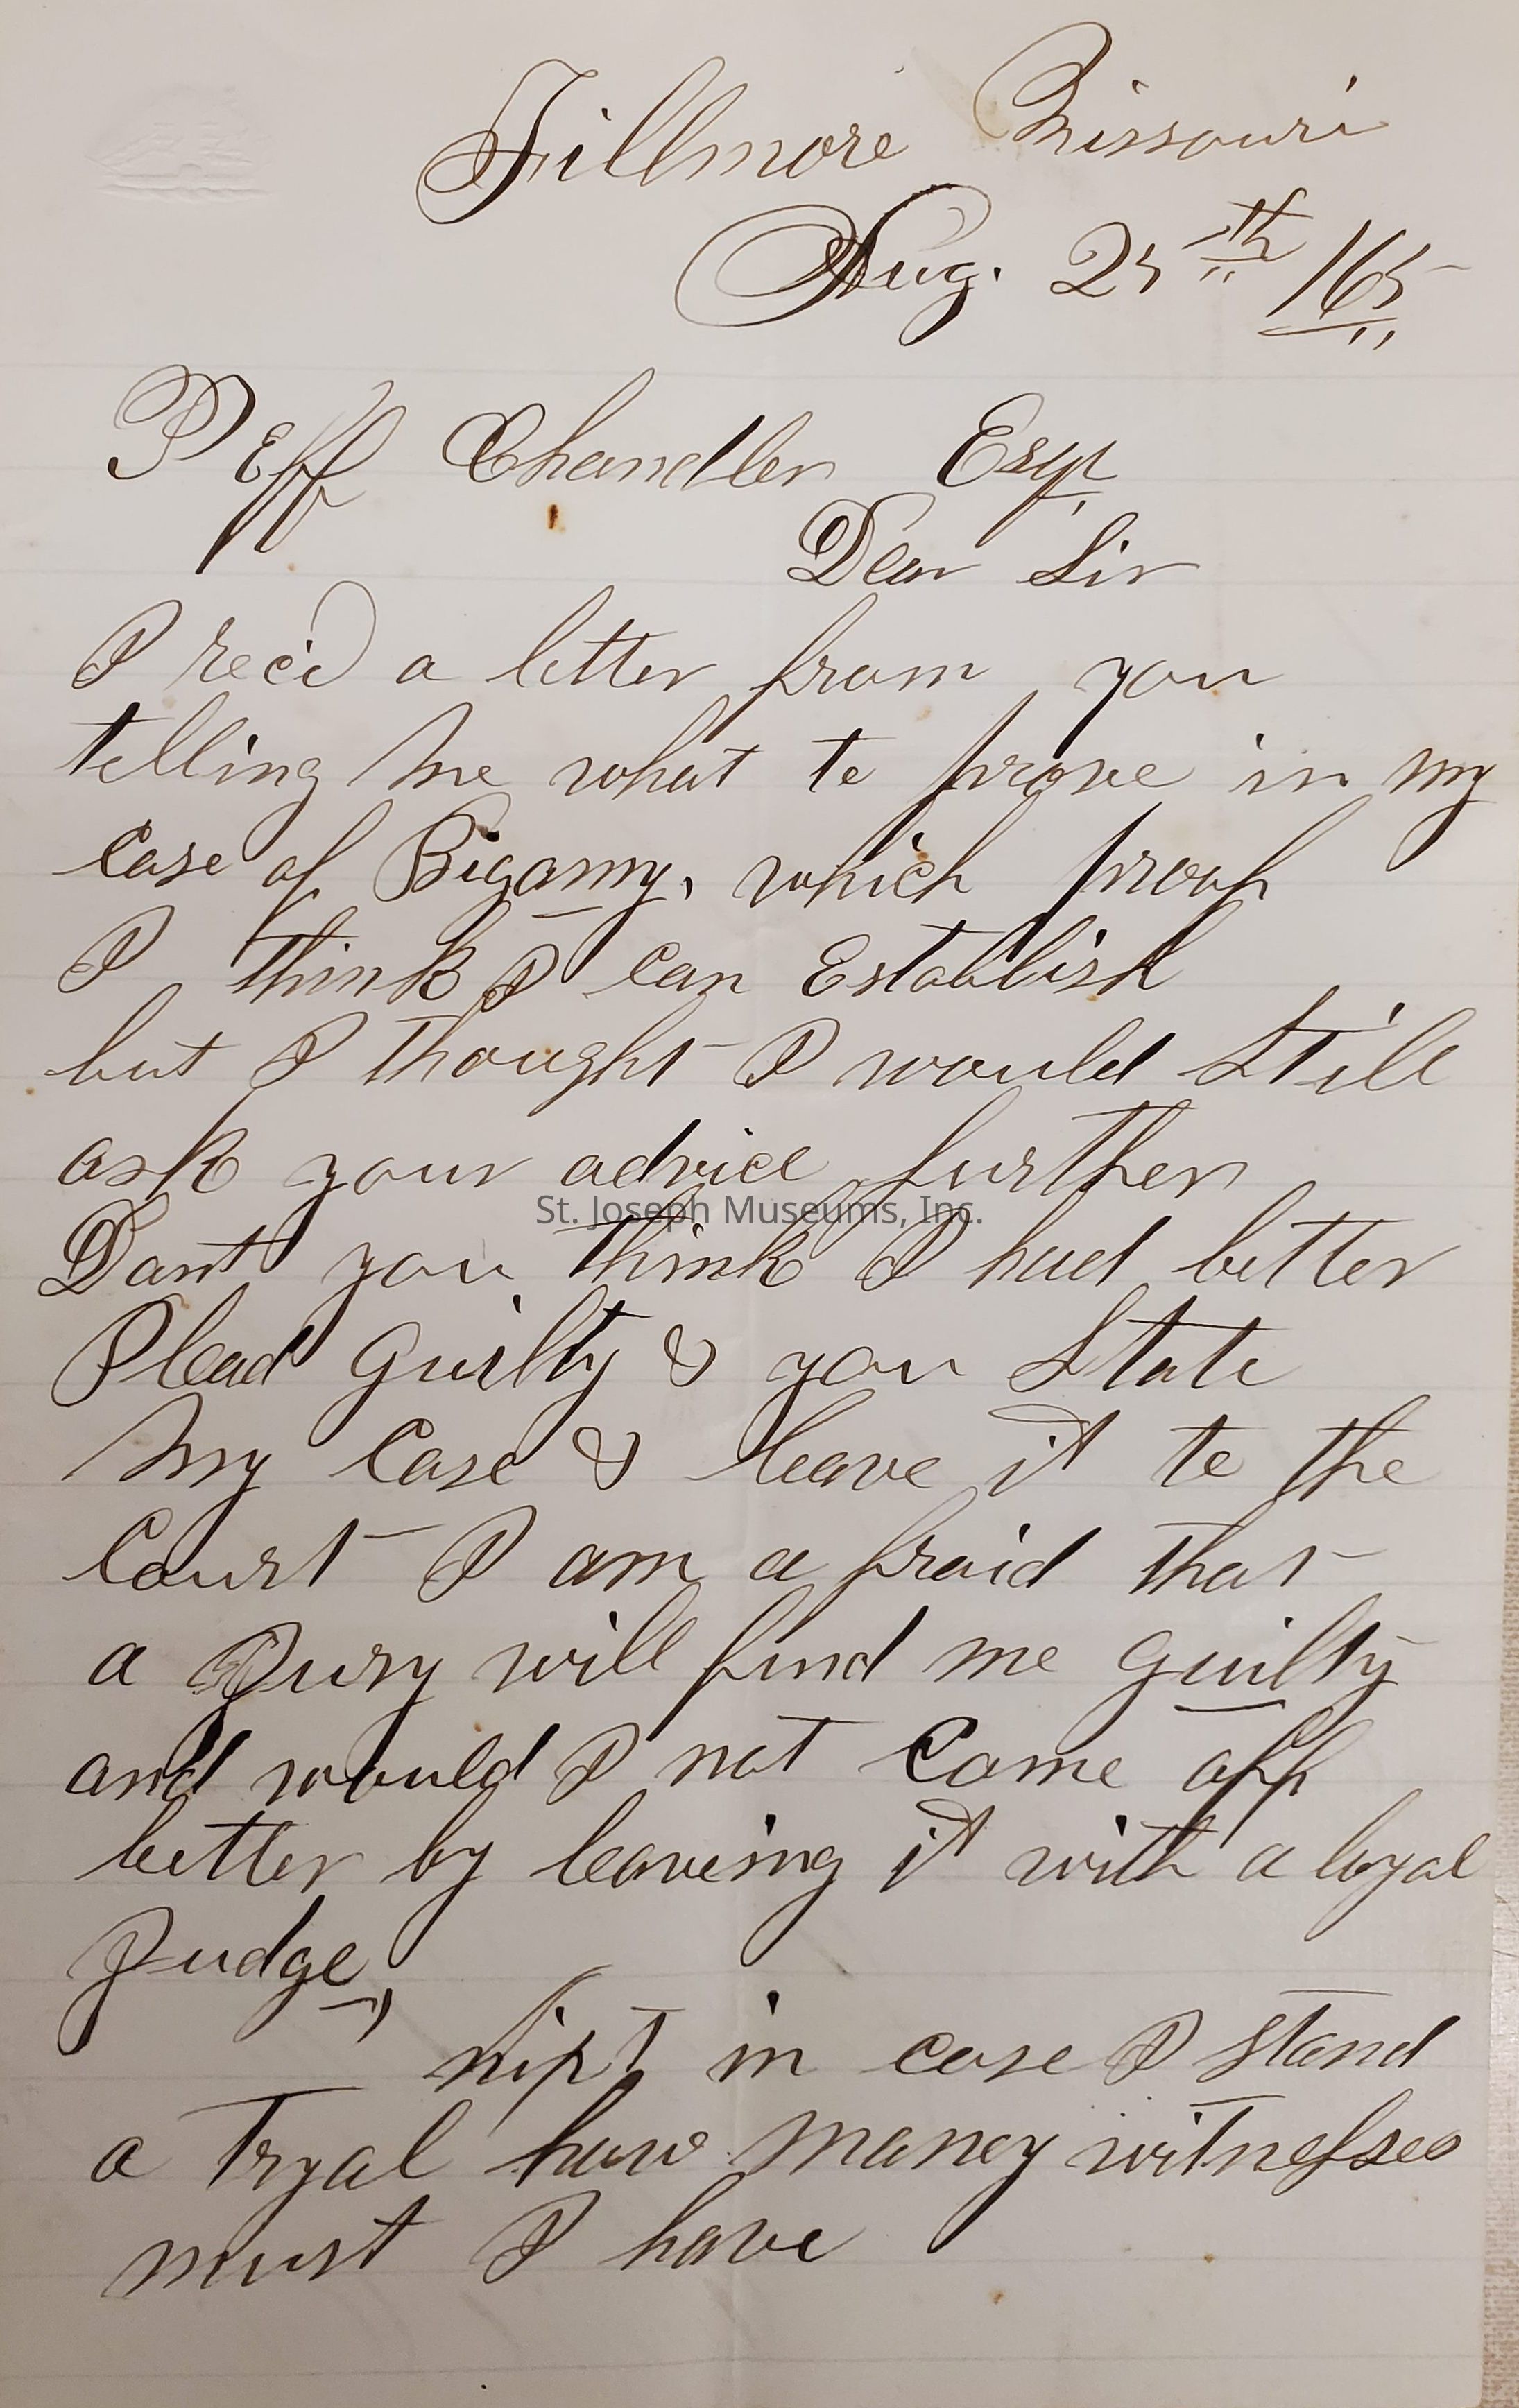 Fillmore Missouri
Aug. 25th /65
Jeff Chandler Esqr
Dear Sir
I rec'd a letter from you
telling me what to prove in my
Case of Bigamy, which proof
I think I can Establish
but I thought I would Still
ask your advice further
Dont you think I had better
Plead Guilty & you State
My Case & leave it to the
Court I am a fraid that
a Jury will find me guilty
and would I not Come off
better by leaveing it with a loyal
Judge,
nixt in case I stand
a Tryal how maney witnesses
must I have
St. Joseph Museums, Inc.